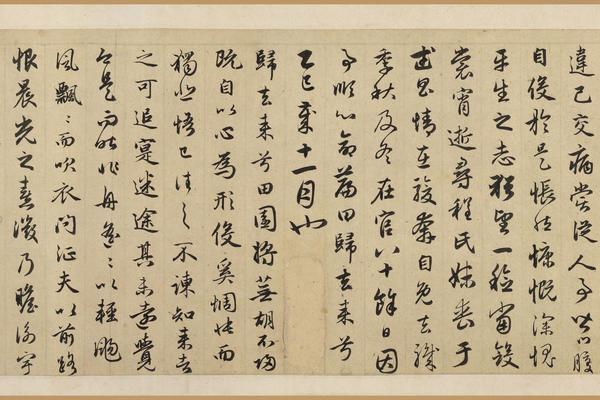 違己交病嘗從人事皆口腹
自役於是悵然慷慨深愧
平生之志猶望一稔當斂
裳宵逝尋程氏妹喪于
武昌情在駿奔自免去職
季秋及冬在官八十餘日因
事順心命篇曰歸去來兮
乙巳歲十一月也
歸去來兮田園將蕪胡不歸
既自以心為形役奚惆悵而
獨悲悟已往之不諫知來者
之可追寔迷途其未遠覺
今是而昨非舟遙〻以輕颺
風飄〻而吹衣問征夫以前路
恨晨光之熹微乃瞻衡宇